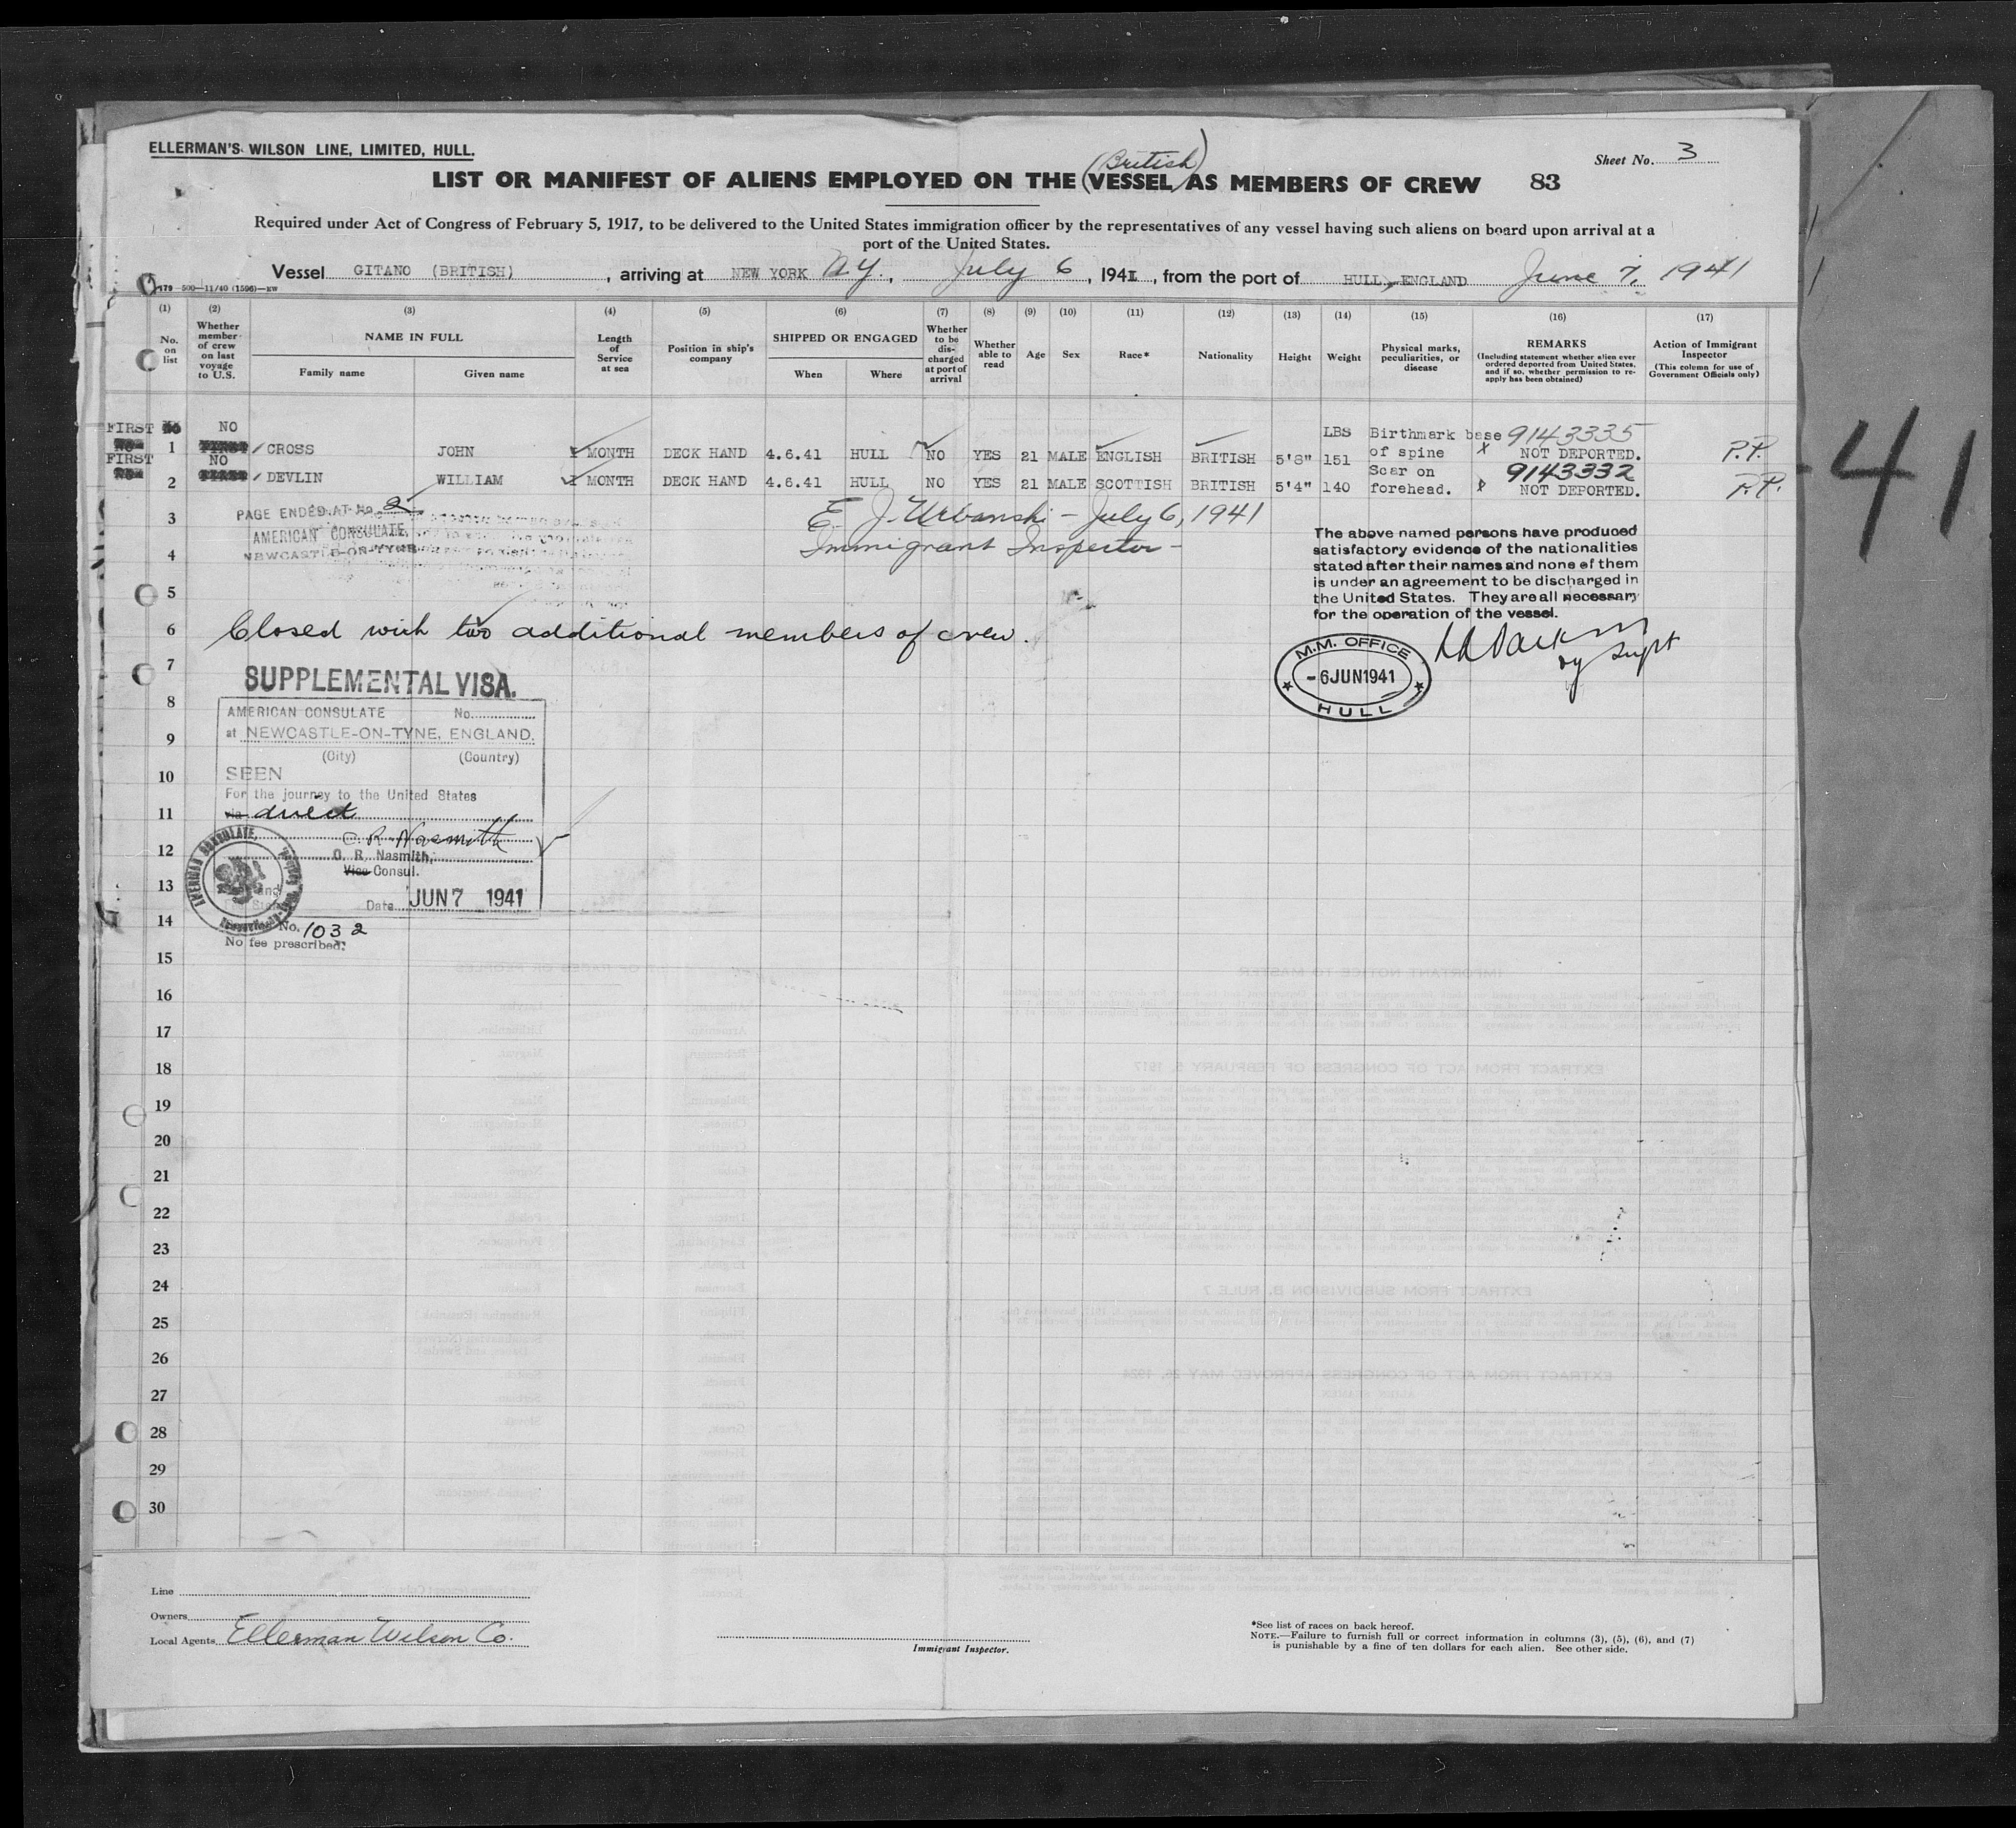 ELLERMAN'S WILSON LINE, LIMITED, HULL.
Sheet No. 3
(British)
LIST OR MANIFEST OF ALIENS EMPLOYED ON THE (VESSEL) AS MEMBERS OF CREW 83
Required under Act of Congress of February 5, 1917, to be delivered to the United States immigration officer by the representatives of any vessel having such aliens on board upon arrival at a
port of the United States.
Vessel GITANO (BRITISH), arriving at NEW YORK N.Y., July 6, 1941, from the port of HULL, ENGLAND June 7, 1941
179—500—11/40 (1596)—KW
(1) (2) (3) (4) (5) (6) (7) (8) (9) (10) (11) (12) (13) (14) (15) (16) (17)
No. on list
Whether member of crew on last voyage to U.S.
NAME IN FULL
Family name Given name
Length of Service at sea
Position in ship's company
SHIPPED OR ENGAGED
When Where
Whether to be discharged at port of arrival
Whether able to read
Age
Sex
Race*
Nationality
Height
Weight
Physical marks, peculiarities, or disease
REMARKS
(Including statement whether alien ever ordered deported from United States, and if so, whether permission to re-apply has been obtained)
Action of Immigrant Inspector
(This column for use of Government Officials only)
FIRST NO LBS Birthmark base 9143335
1 CROSS JOHN 1 MONTH DECK HAND 4.6.41 HULL NO YES 21 MALE ENGLISH BRITISH 5'8" 151 of spine X NOT DEPORTED. P.P.
FIRST NO Scar on 9143332
2 DEVLIN WILLIAM 1 MONTH DECK HAND 4.6.41 HULL NO YES 21 MALE SCOTTISH BRITISH 5'4" 140 forehead. NOT DEPORTED. P.P.
3
PAGE ENDED AT No. 2
AMERICAN CONSULATE,
NEWCASTLE-ON-TYNE
E. J. Urbanski - July 6, 1941
Immigrant Inspector -
The above named persons have produced
satisfactory evidence of the nationalities
stated after their names and none of them
is under an agreement to be discharged in
the United States. They are all necessary
for the operation of the vessel.
4
5
6
Closed with two additional members of crew.
M.M. OFFICE
-6 JUN 1941
HULL
7
SUPPLEMENTAL VISA.
8
AMERICAN CONSULATE No.
at NEWCASTLE-ON-TYNE, ENGLAND.
(City) (Country)
9
10
SEEN
For the journey to the United States
11
via direct
C. R. Nasmith
12
C. R. Nasmith,
Vice Consul.
13
Date JUN 7 1941
AMERICAN CONSULATE,
14
No. 1032
No fee prescribed.
15
16
17
18
19
20
21
22
23
24
25
26
27
28
29
30
41
Line
Owners
Local Agents Ellerman Wilson Co.
Immigrant Inspector.
*See list of races on back hereof.
NOTE.—Failure to furnish full or correct information in columns (3), (5), (6), and (7)
is punishable by a fine of ten dollars for each alien. See other side.